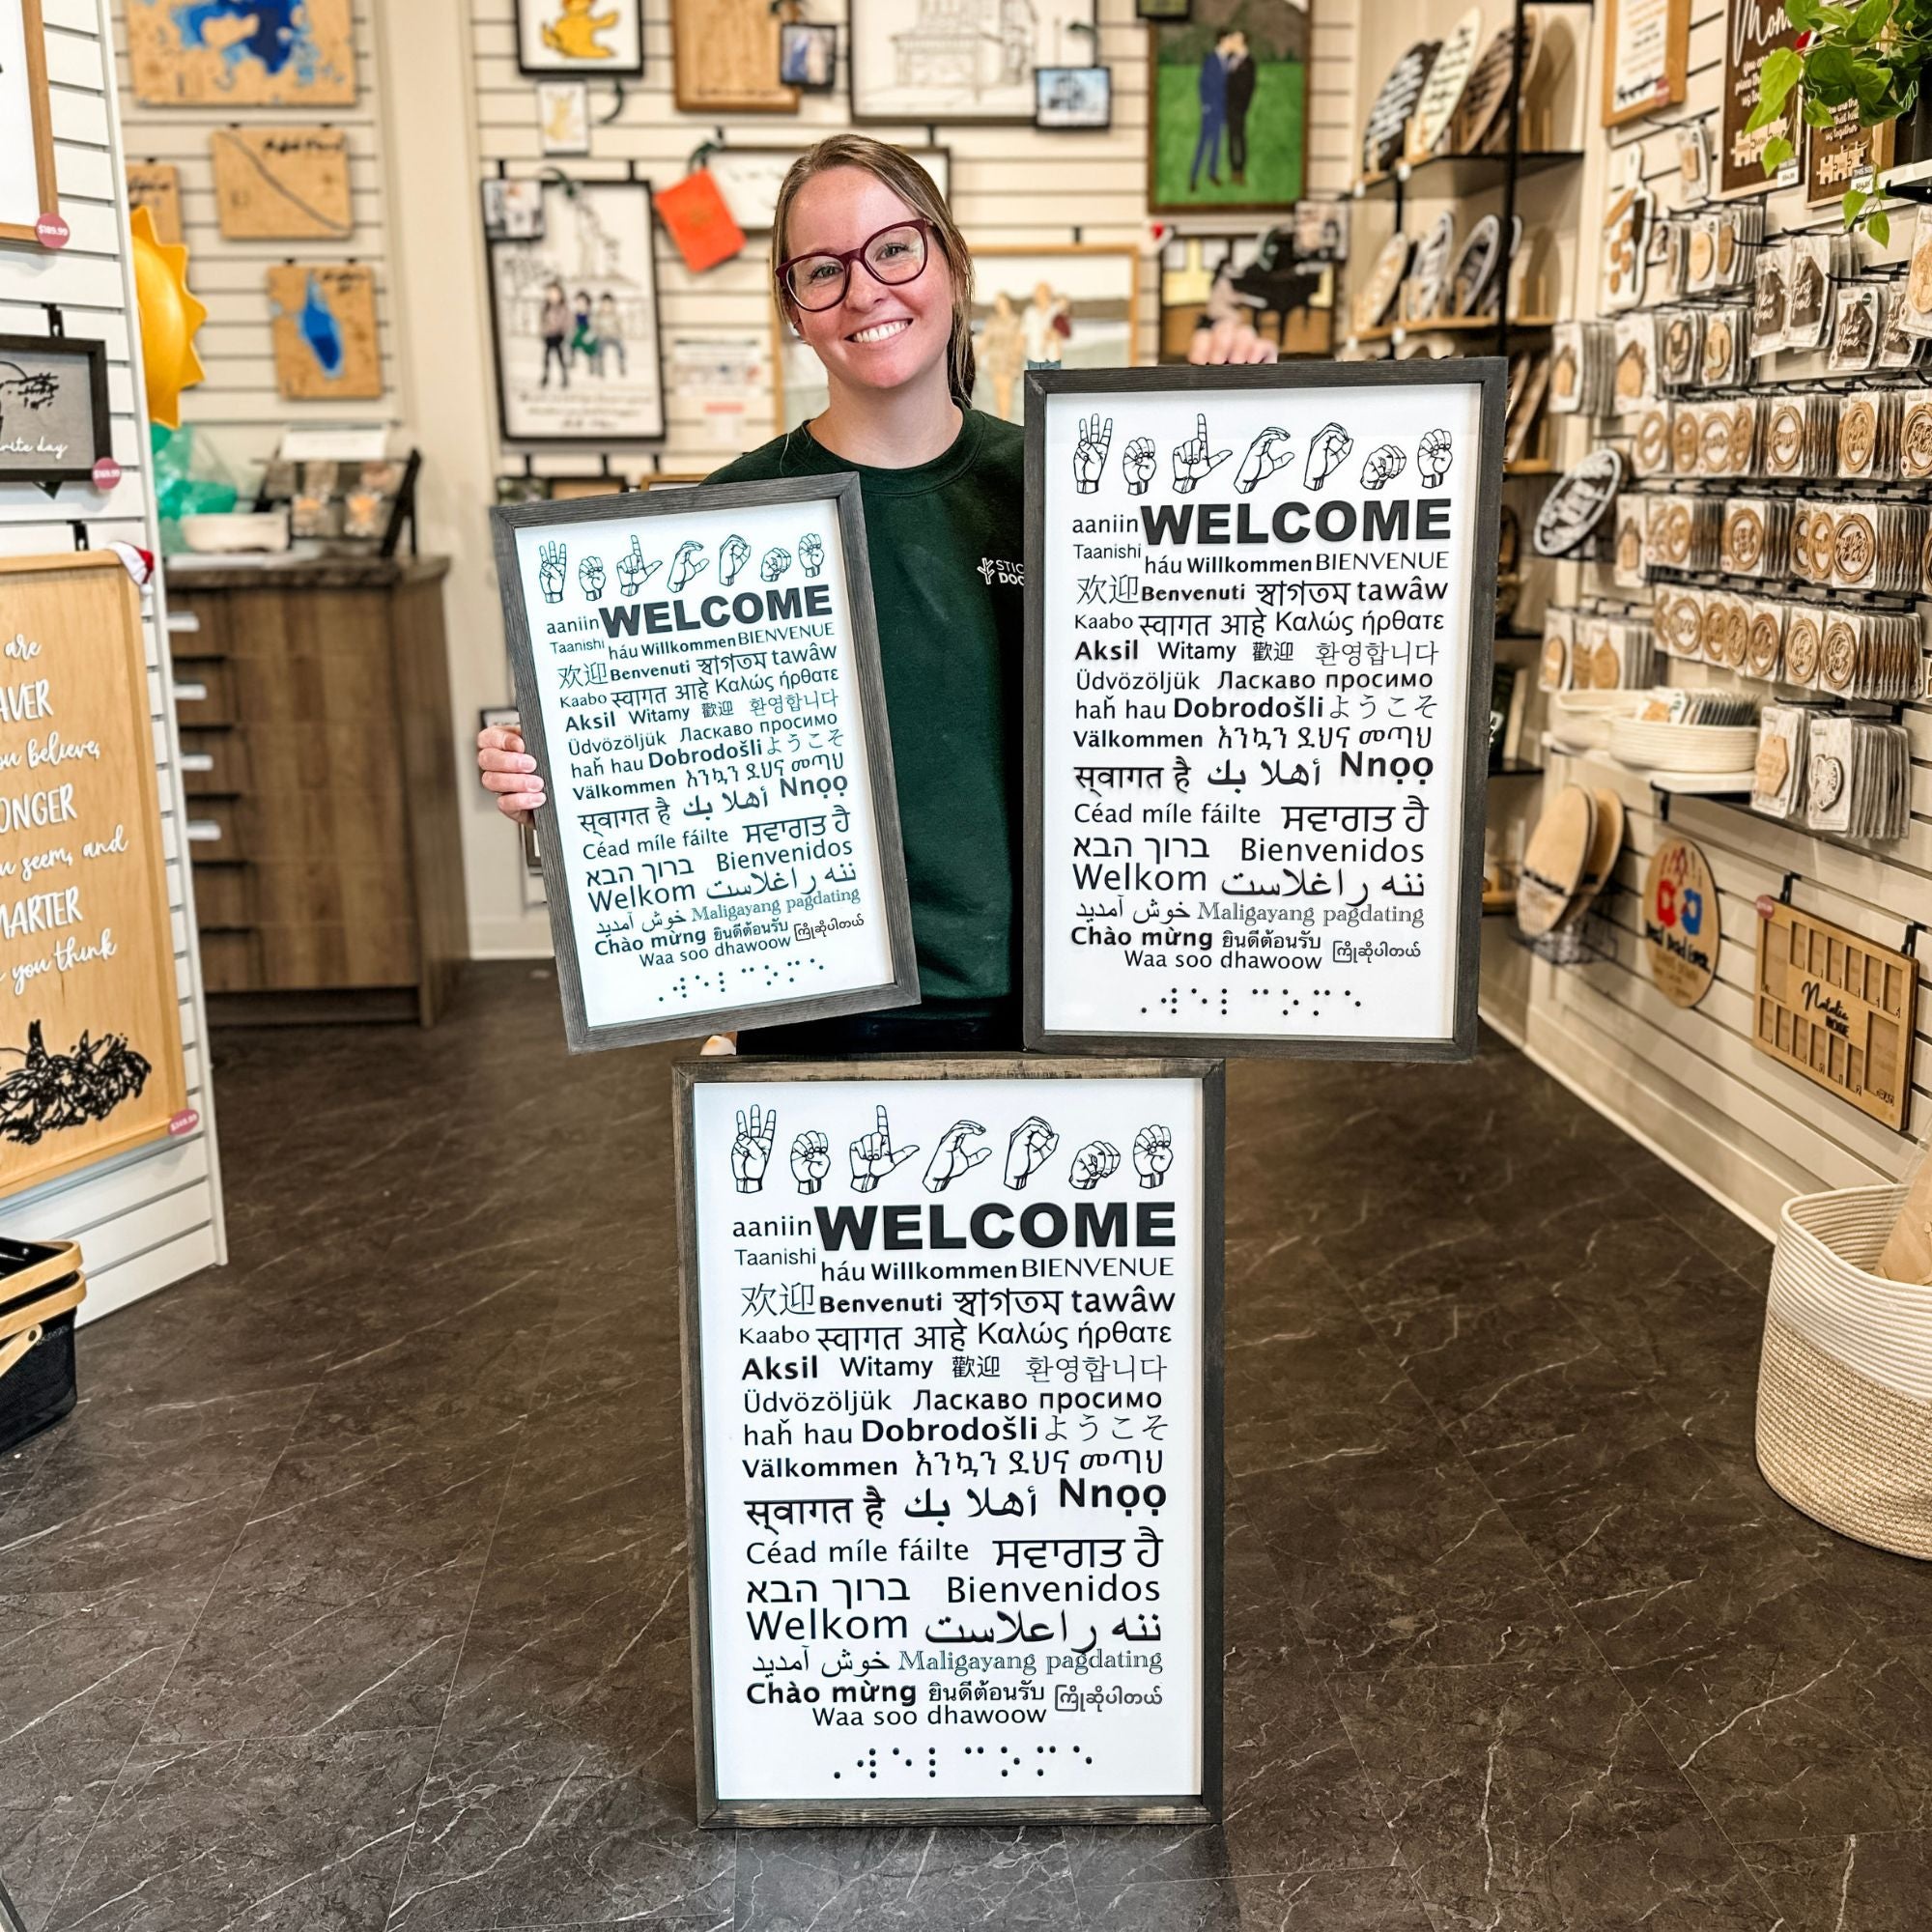 aaniin WELCOME
Taanishi háu Willkommen BIENVENUE
欢迎 Benvenuti স্বাগতম tawâw
Kaabo स्वागत आहे Καλώς ήρθατε
Aksil Witamy 歡迎 환영합니다
Üdvözöljük Ласкаво просимо
haȟ hau Dobrodošli ようこそ
Välkommen እንኳን ደህና መጣህ
स्‌वागत है أهلا بك Nnọọ
Céad míle fáilte ਸਵਾਗਤ ਹੈ
ברוך הבא Bienvenidos
Welkom ننه راغلاست
خوش آمدید Maligayang pagdating
Chào mừng ยินดีต้อนรับ ကြိုဆိုပါတယ်
Waa soo dhawoow
⠠⠺⠑⠇⠉⠕⠍⠑
aaniin WELCOME
Taanishi háu Willkommen BIENVENUE
欢迎 Benvenuti স্বাগতম tawâw
Kaabo स्वागत आहे Καλώς ήρθατε
Aksil Witamy 歡迎 환영합니다
Üdvözöljük Ласкаво просимо
haȟ hau Dobrodošli ようこそ
Välkommen እንኳን ደህና መጣህ
स्‌वागत है أهلا بك Nnọọ
Céad míle fáilte ਸਵਾਗਤ ਹੈ
ברוך הבא Bienvenidos
Welkom ننه راغلاست
خوش آمدید Maligayang pagdating
Chào mừng ยินดีต้อนรับ ကြိုဆိုပါတယ်
Waa soo dhawoow
⠠⠺⠑⠇⠉⠕⠍⠑
aaniin WELCOME
Taanishi háu Willkommen BIENVENUE
欢迎 Benvenuti স্বাগতম tawâw
Kaabo स्वागत आहे Καλώς ήρθατε
Aksil Witamy 歡迎 환영합니다
Üdvözöljük Ласкаво просимо
haȟ hau Dobrodošli ようこそ
Välkommen እንኳን ደህና መጣህ
स्‌वागत है أهلا بك Nnọọ
Céad míle fáilte ਸਵਾਗਤ ਹੈ
ברוך הבא Bienvenidos
Welkom ننه راغلاست
خوش آمدید Maligayang pagdating
Chào mừng ยินดีต้อนรับ ကြိုဆိုပါတယ်
Waa soo dhawoow
⠠⠺⠑⠇⠉⠕⠍⠑
day
are
believe,
seem, and
you think
Mom
Natalie
ROSE